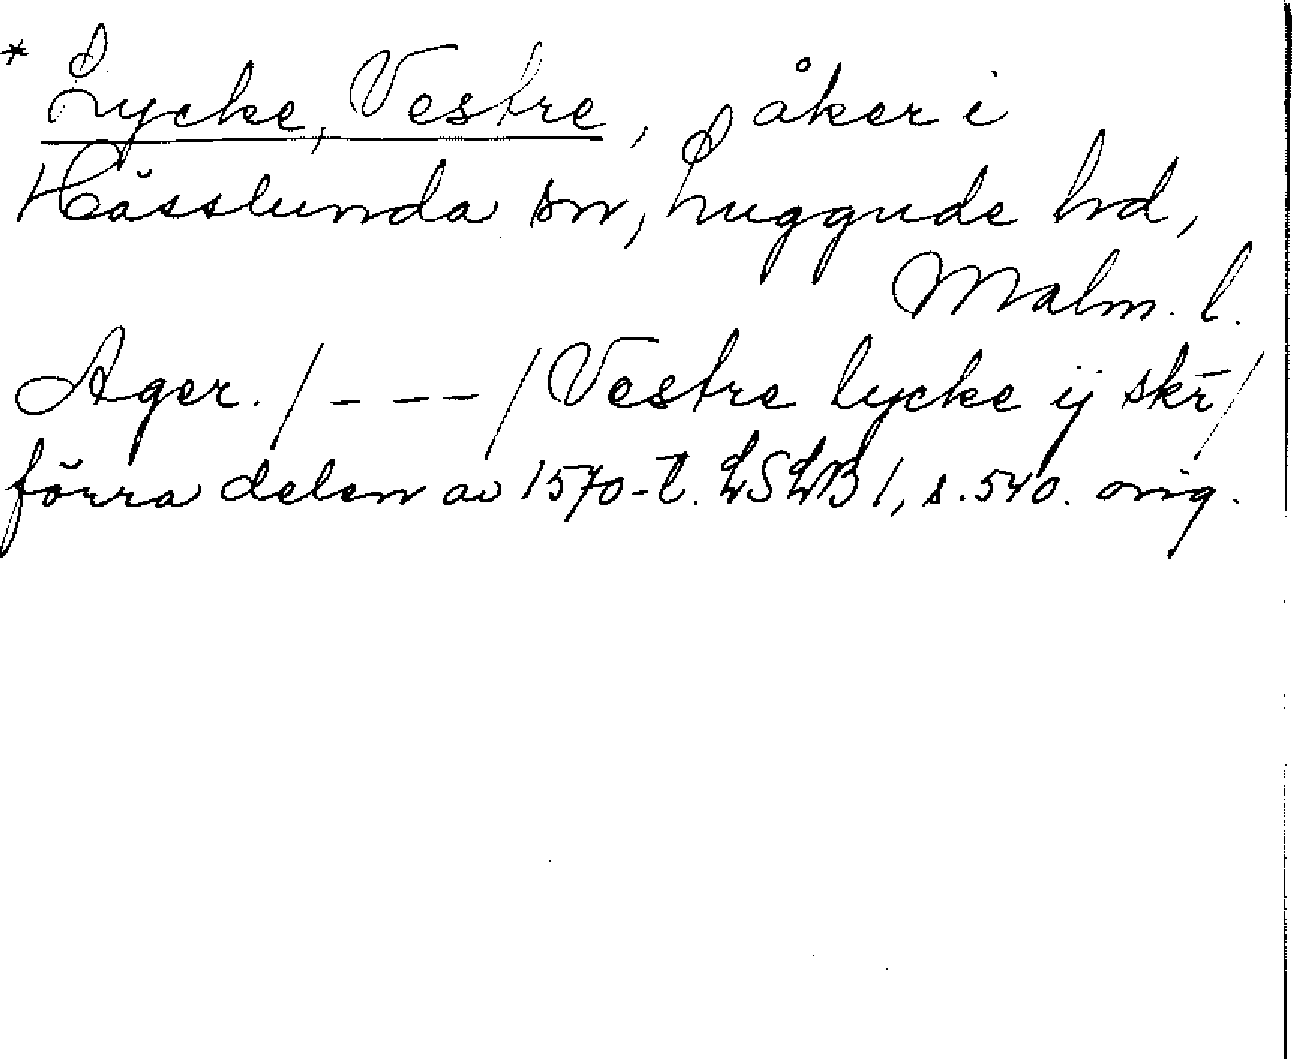 * Lycke, Vestre, åker i
Hässlunda sn, Luggude hd,
Malm. l.
Ager. / - - - / Vestre lycke ij skr̄ /
förra delen av 1570-t. LSLB 1, s. 540. orig.